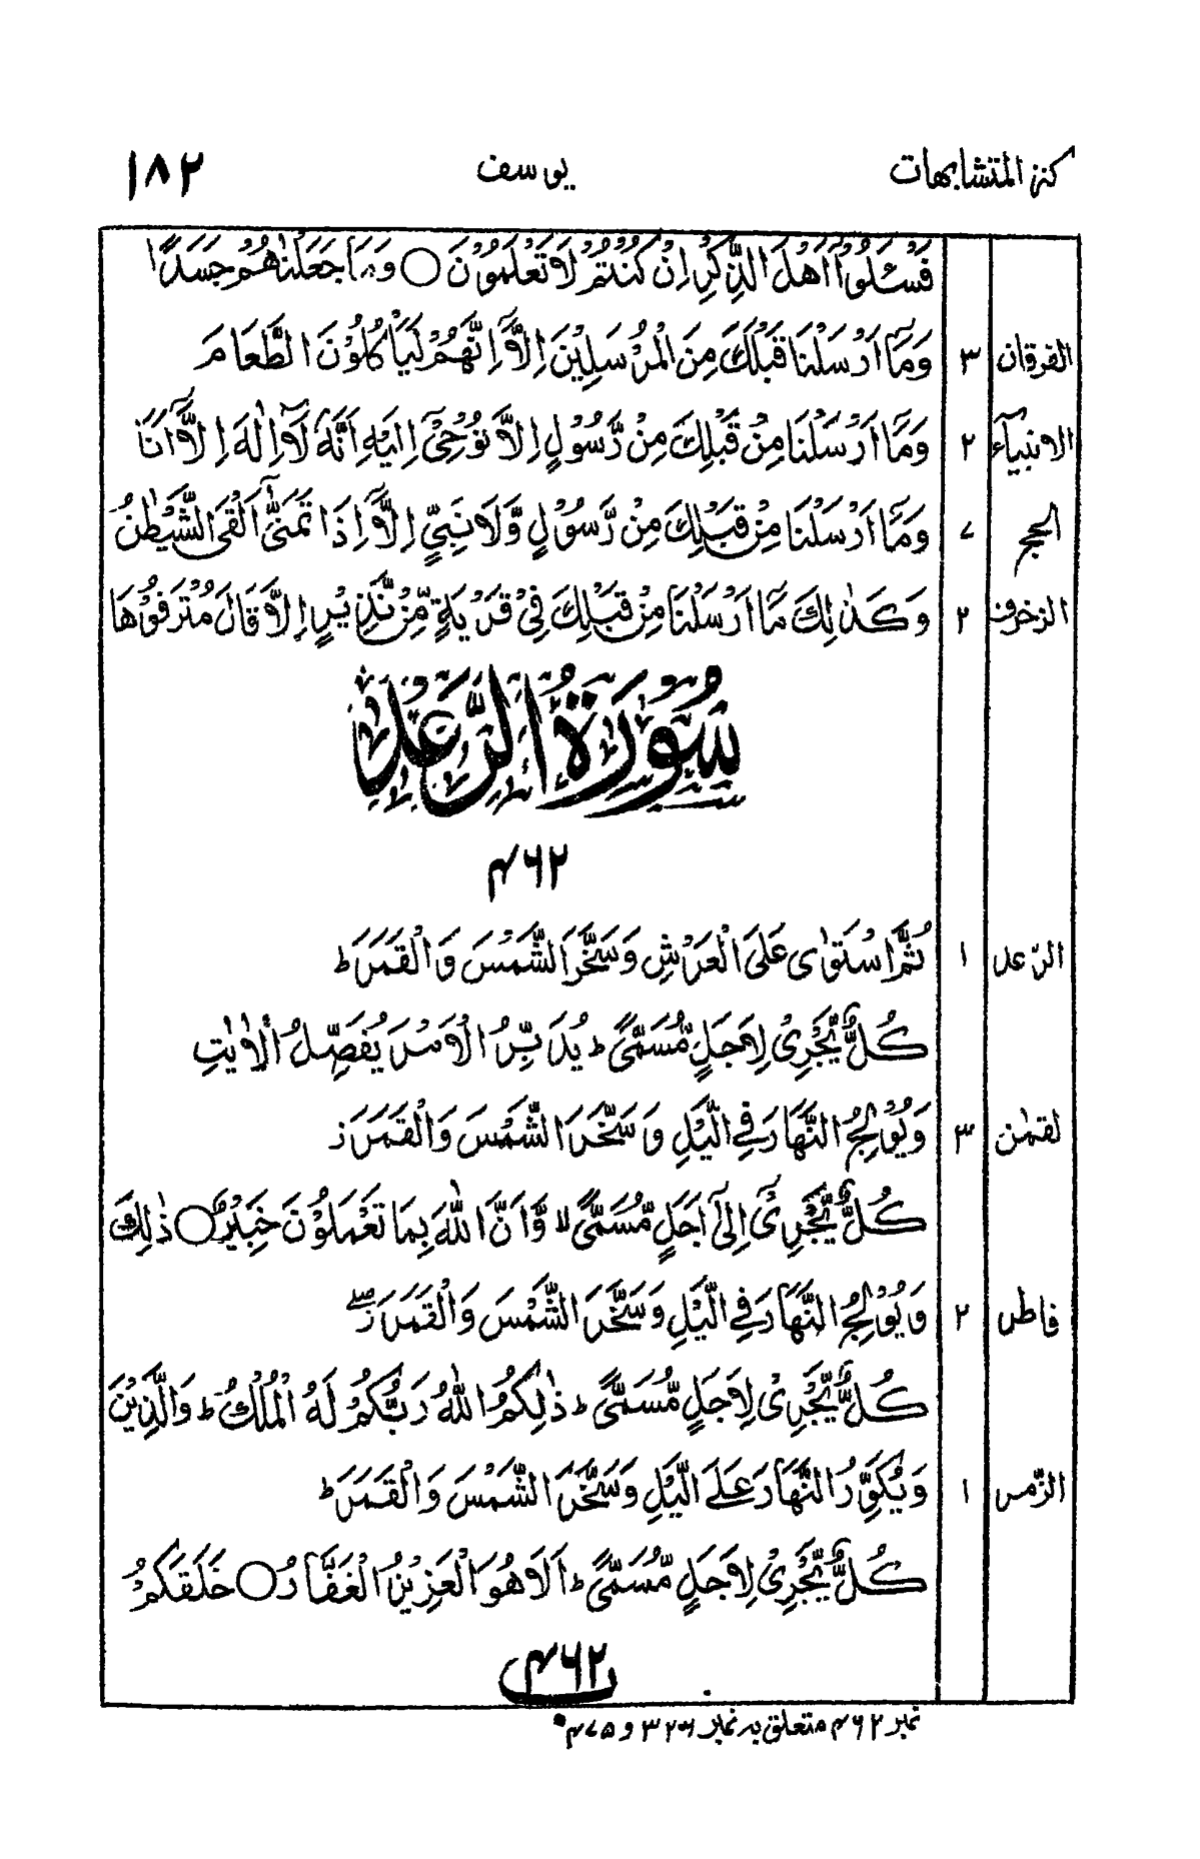 كنز المتشابهات يوسف ١٨٢
فَسْـَٔلُوْٓا اَهْلَ الذِّكْرِ اِنْ كُنْتُمْ لَا تَعْلَمُوْنَ ○ وَمَا جَعَلْنٰهُمْ جَسَدًا
الفرقان ٣ وَمَآ اَرْسَلْنَا قَبْلَكَ مِنَ الْمُرْسَلِيْنَ اِلَّآ اِنَّهُمْ لَيَاْكُلُوْنَ الطَّعَامَ
الانبيآء ٢ وَمَآ اَرْسَلْنَا مِنْ قَبْلِكَ مِنْ رَّسُوْلٍ اِلَّا نُوْحِىْٓ اِلَيْهِ اَنَّهٗ لَآ اِلٰهَ اِلَّآ اَنَا
الحجر ٧ وَمَآ اَرْسَلْنَا مِنْ قَبْلِكَ مِنْ رَّسُوْلٍ وَّلَا نَبِيٍّ اِلَّآ اِذَا تَمَنّٰىٓ اَلْقَى الشَّيْطٰنُ
الزخرف ٢ وَكَذٰلِكَ مَآ اَرْسَلْنَا مِنْ قَبْلِكَ فِىْ قَرْيَةٍ مِّنْ نَّذِيْرٍ اِلَّا قَالَ مُتْرَفُوْهَا
سُوْرَةُ الرَّعْدِ
۴۶۲
الرّعد ١ ثُمَّ اسْتَوٰى عَلَى الْعَرْشِ وَسَخَّرَ الشَّمْسَ وَالْقَمَرَ ط
كُلٌّ يَّجْرِىْ لِاَجَلٍ مُّسَمًّى ط يُدَبِّرُ الْاَمْرَ يُفَصِّلُ الْاٰيٰتِ
لقمٰن ٣ وَيُوْلِجُ النَّهَارَ فِى الَّيْلِ وَسَخَّرَ الشَّمْسَ وَالْقَمَرَ ز
كُلٌّ يَّجْرِىْٓ اِلٰٓى اَجَلٍ مُّسَمًّى لا وَّاَنَّ اللّٰهَ بِمَا تَعْمَلُوْنَ خَبِيْرٌ ○ ذٰلِكَ
فاطر ٢ وَيُوْلِجُ النَّهَارَ فِى الَّيْلِ وَسَخَّرَ الشَّمْسَ وَالْقَمَرَ زصلے
كُلٌّ يَّجْرِىْ لِاَجَلٍ مُّسَمًّى ط ذٰلِكُمُ اللّٰهُ رَبُّكُمْ لَهُ الْمُلْكُ ط وَالَّذِيْنَ
الزّمر ١ وَيُكَوِّرُ النَّهَارَ عَلَى الَّيْلِ وَسَخَّرَ الشَّمْسَ وَالْقَمَرَ ط
كُلٌّ يَّجْرِىْ لِاَجَلٍ مُّسَمًّى ط اَلَا هُوَ الْعَزِيْزُ الْغَفَّارُ ○ خَلَقَكُمْ
۴۶۲
نمبر ۴۶۲ متعلق بہ نمبر ۳۲۶ و ۴۷۵